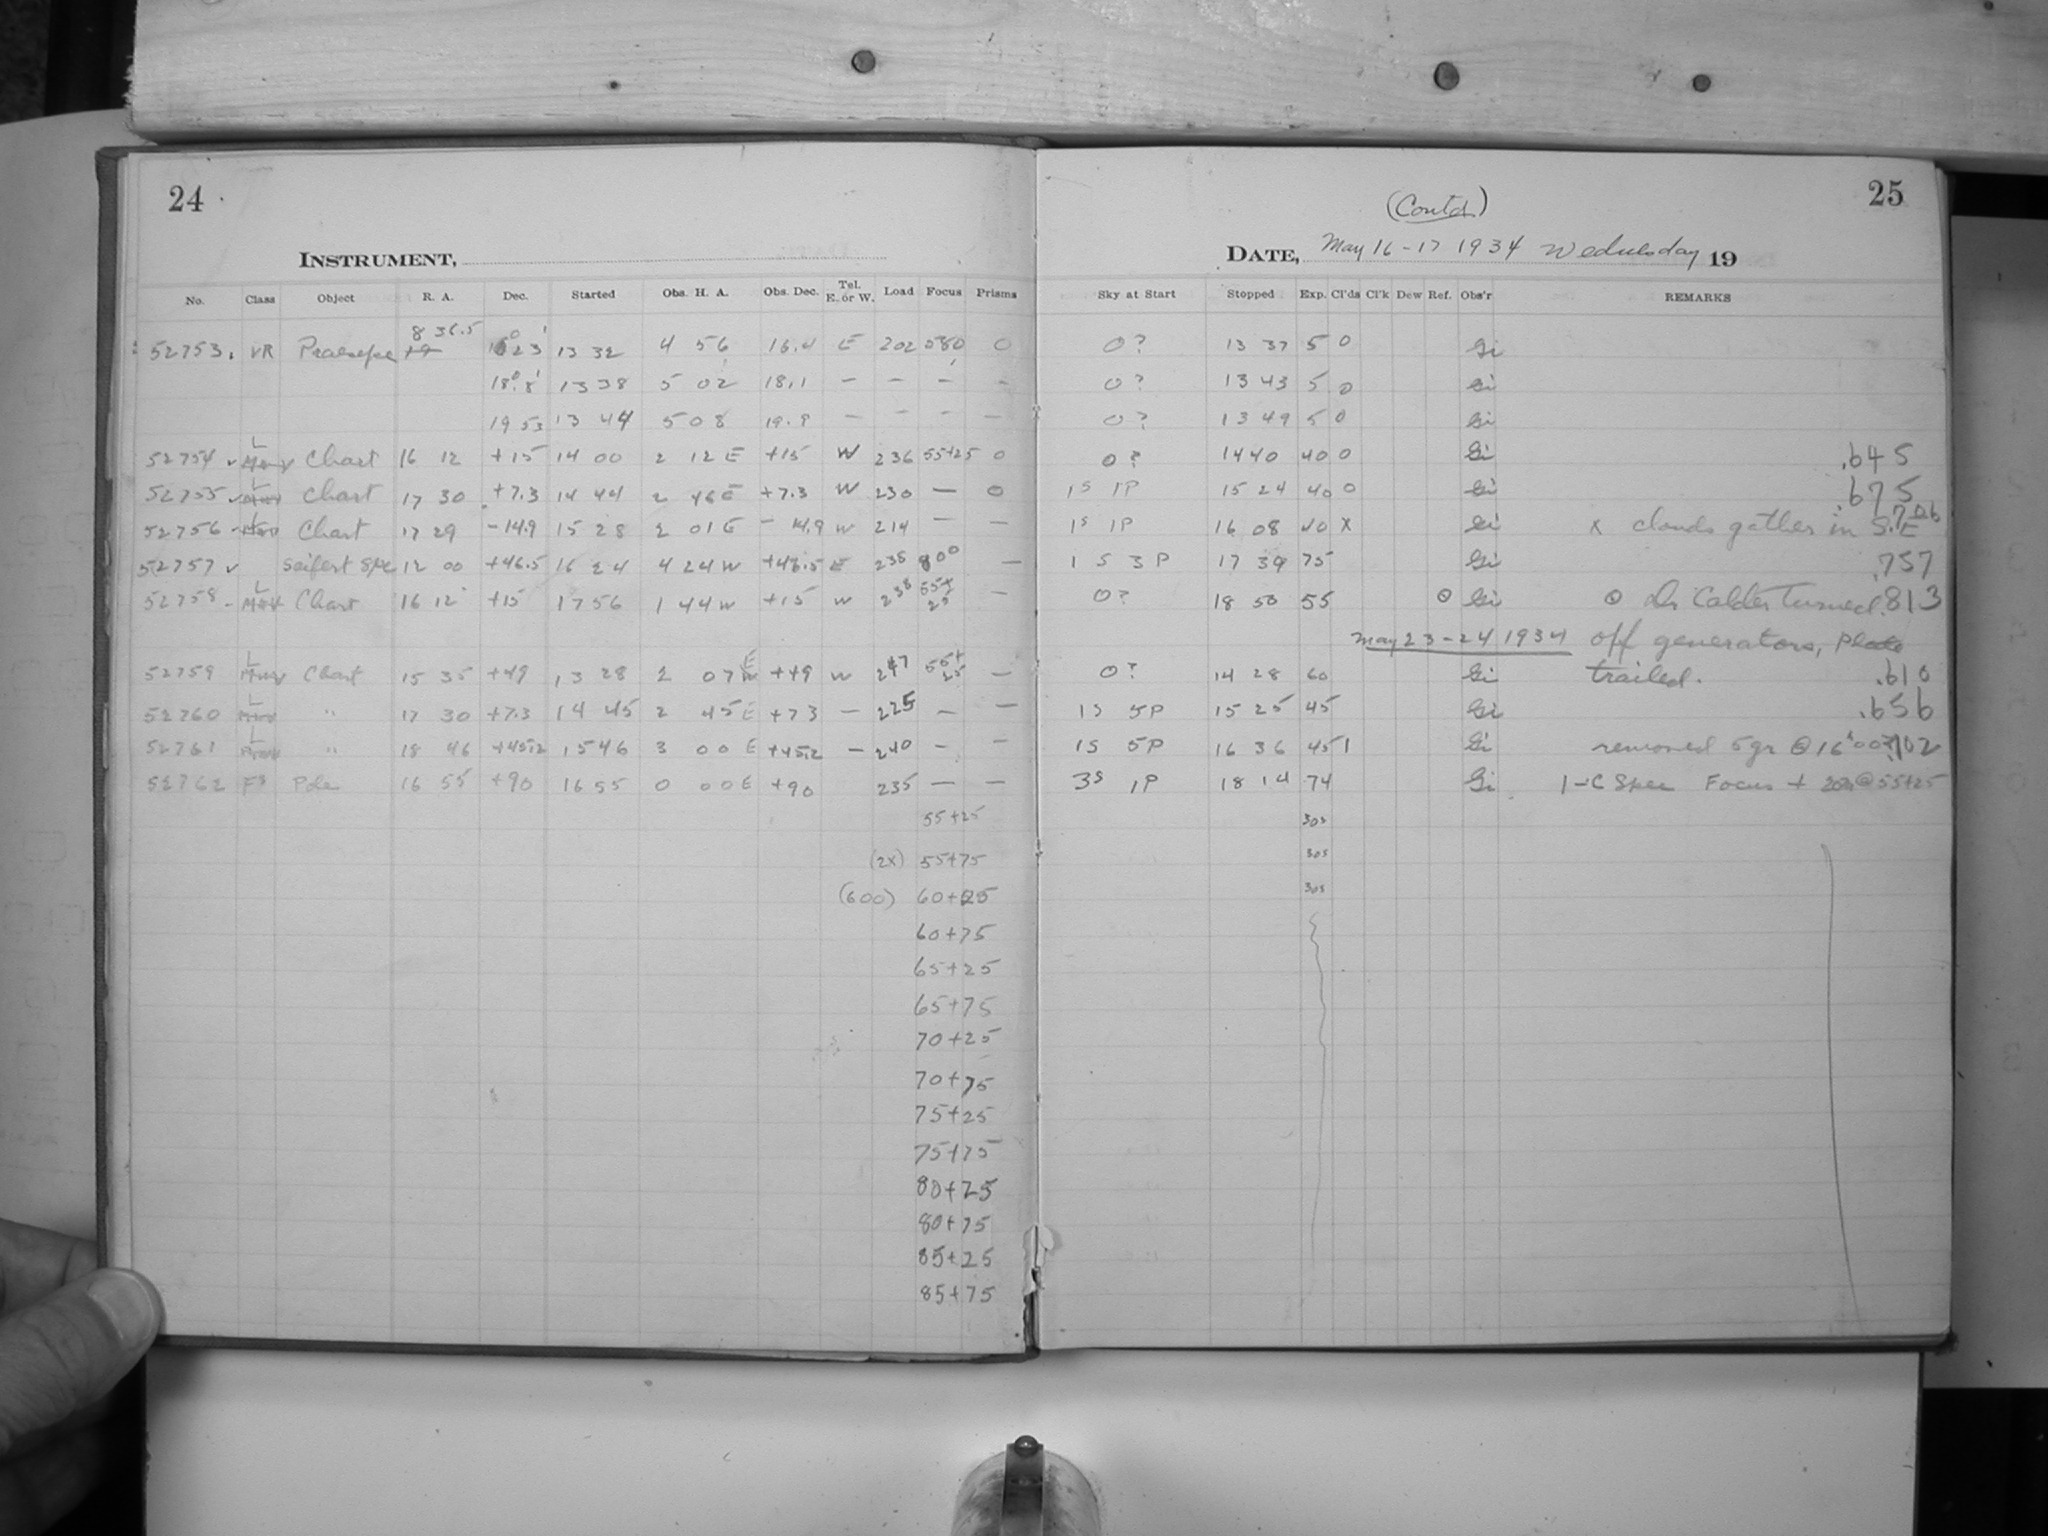 24
INSTRUMENT,
No. Class Object R. A. Dec. Started Obs. H. A. Obs. Dec. Tel. E. or W. Load Focus Prisms
8 36.5
52753. VR Praesepe 16 23 13 32 4 56 16.4 E 202 080 0
18° 8' 13 38 5 02 18.1 — — — —
19 53 13 44 5 08 19.9 — — — —
52754 L Chart 16 12 +15 14 00 2 12 E +15 W 236 55+25 0
52755 L Chart 17 30 +7.3 14 44 2 46 E +7.3 W 230 — 0
52756 Chart 17 29 -14.9 15 28 2 01 E -14.9 W 214 — —
52757 Seifert Spe 12 00 +46.5 16 24 4 24 W +46.5 E 238 800 —
52758 L Chart 16 12 +15 17 56 1 44 W +15 W 238 55+25 —
52759 L Chart 15 35 +49 13 28 2 07 E +49 W 247 55+25 —
52760 L " 17 30 +7.3 14 45 2 45 E +7.3 — 225 — —
52761 L " 18 46 +45.2 15 46 3 00 E +45.2 — 240 — —
52762 Fs Pole 16 55 +90 16 55 0 00 E +90 235 — —
55+25
(2x) 55+75
(600) 60+25
60+75
65+25
65+75
70+25
70+75
75+25
75+75
80+25
80+75
85+25
85+75
25
(Contd)
DATE, May 16-17 1934 Wednesday 19
Sky at Start Stopped Exp. Cl'ds Cl'k Dew Ref. Obs'r REMARKS
0? 13 37 5 0 Gi
0? 13 43 5 0 Gi
0? 13 49 5 0 Gi
0? 14 40 40 0 Gi .645
1S 1P 15 24 40 0 Gi .675
1S 1P 16 08 40 X Gi x clouds gather in S.E .706
1 S 3 P 17 39 75 Gi .757
0? 18 50 55 ⊙ Gi ⊙ Dr Calder turned .813
May 23-24 1934 off generators, Plate
0? 14 28 60 Gi trailed. .610
1S 5P 15 25 45 Gi .656
1S 5P 16 36 45 1 Gi removed 5gr @ 16 00 .702
3S 1P 18 14 74 Gi 1-C Spec Focus + @ 55+25
30s
30s
30s